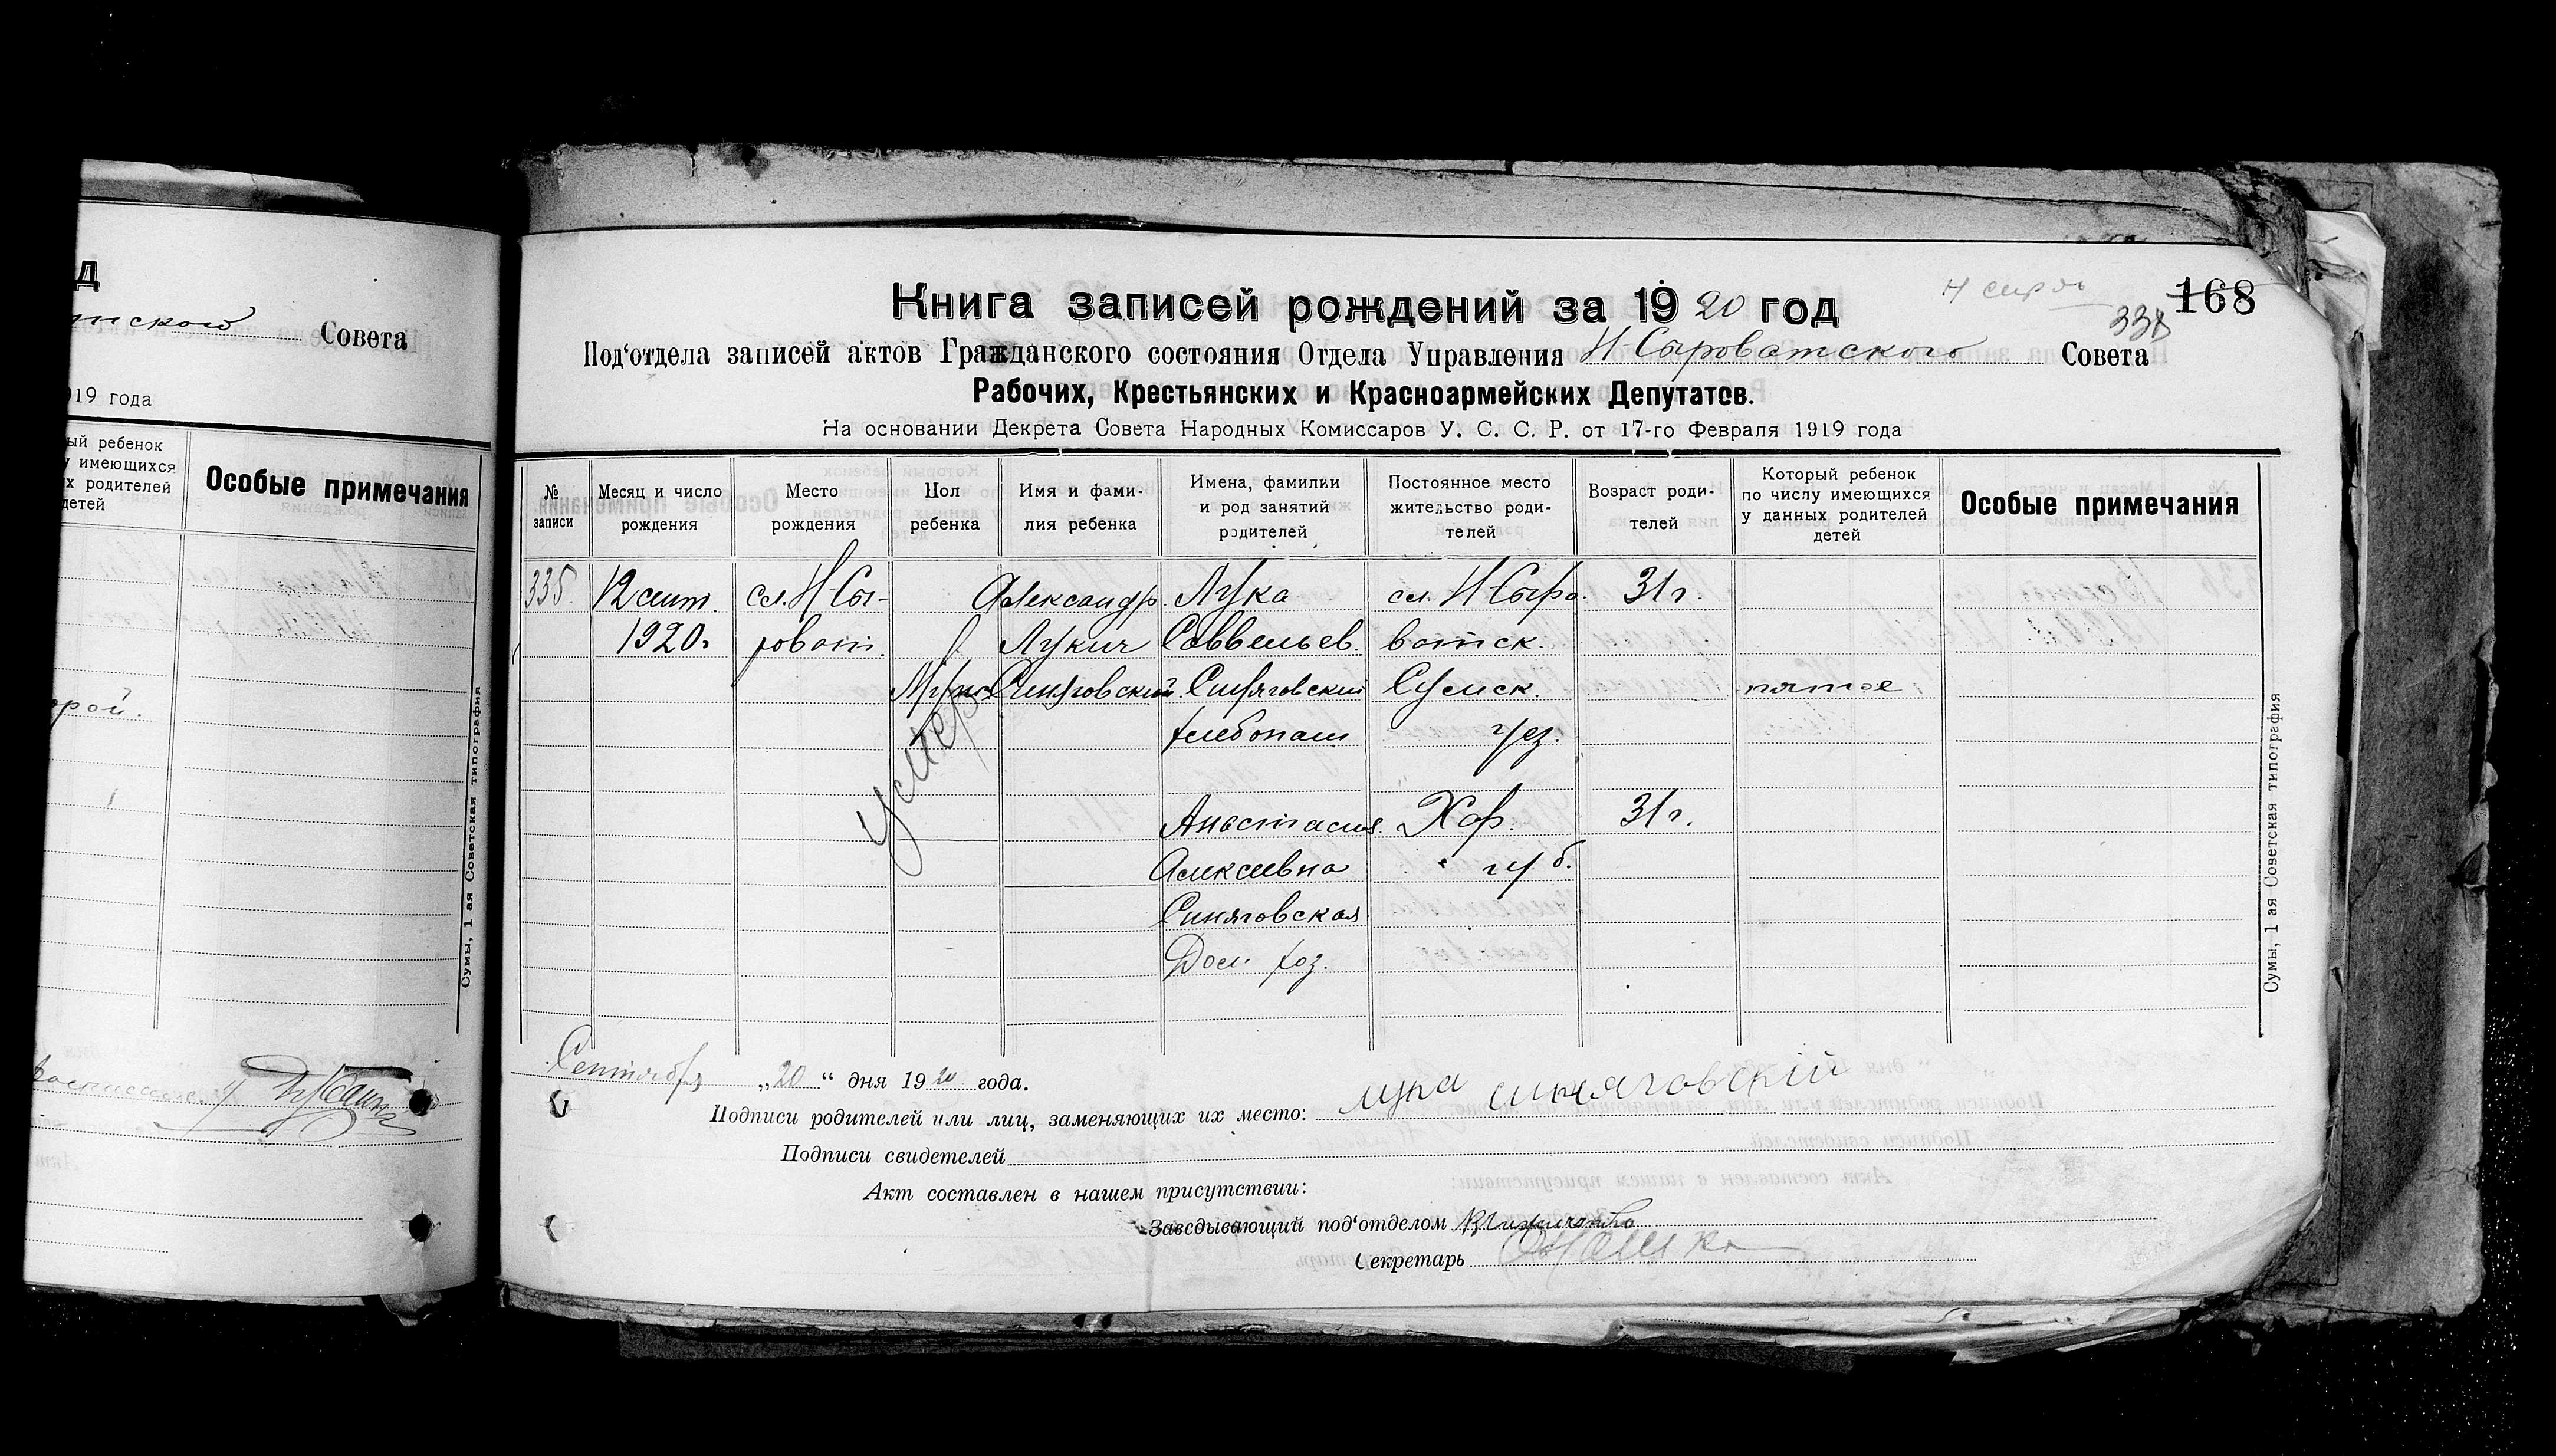 д
тского Совета
919 года
ый ребенок
у имеющихся
х родителей
детей
Особые примечания
рой.
Сумы, 1 ая Советская типография
168
338
Книга записей рождений за 1920 год
Под‘отдела записей актов Гражданского состояния Отдела Управления Н Сыроватского Совета
Рабочих, Крестьянских и Красноармейских Депутатов.
На основании Декрета Совета Народных Комиссаров У. С. С. Р. от 17-го Февраля 1919 года
№ записи
Месяц и число рождения
Место рождения
Пол ребенка
Имя и фами-
лия ребенка
Имена, фамилии
и род занятий
родителей
Постоянное место
жительство роди-
телей
Возраст роди-
телей
Который ребенок
по числу имеющихся
у данных родителей
детей
Особые примечания
335. 12 сент. сл. Н Сы- Александр Лука сл. Н Сыро- 31 г.
1920 г. роват. Лукич Саввельев. ватск.
Мужс Синяговский Синяговский Сумск. пятое
хлебопаш уез.
умер
Анастасия Хар. 31 г.
Алексеевна губ.
Синяговская
Дом. хоз.
Сумы, 1 ая Советская типография
Сентября „20“ дня 1920 года.
Подписи родителей или лиц, заменяющих их место: Лука Синяговскій
Подписи свидетелей
Акт составлен в нашем присутствии:
Заведывающий под‘отделом
Секретарь